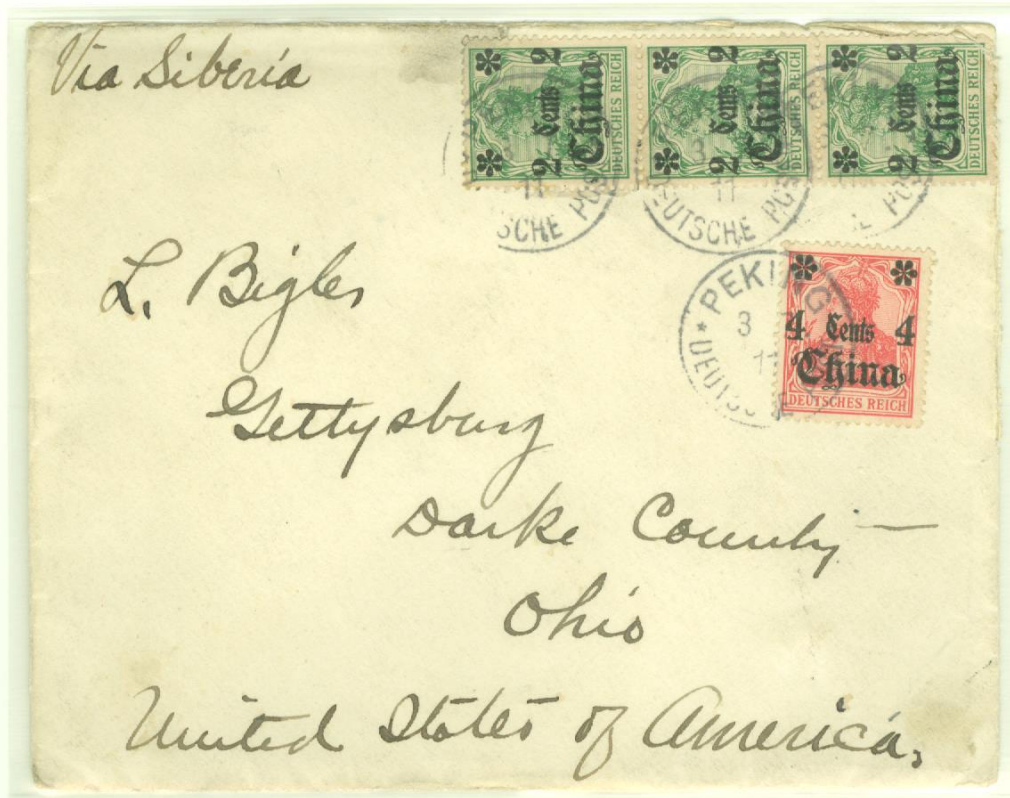 Via Siberia
2 Cents 2
China
DEUTSCHES REICH
2 Cents 2
China
DEUTSCHES REICH
2 Cents 2
China
DEUTSCHES REICH
11
SCHE POS
11
EUTSCHE POS
PEKING
3
11
DEUTSC
4 Cents 4
China
DEUTSCHES REICH
L. Bigler
Gettysburg
Darke County
Ohio
United States of America,